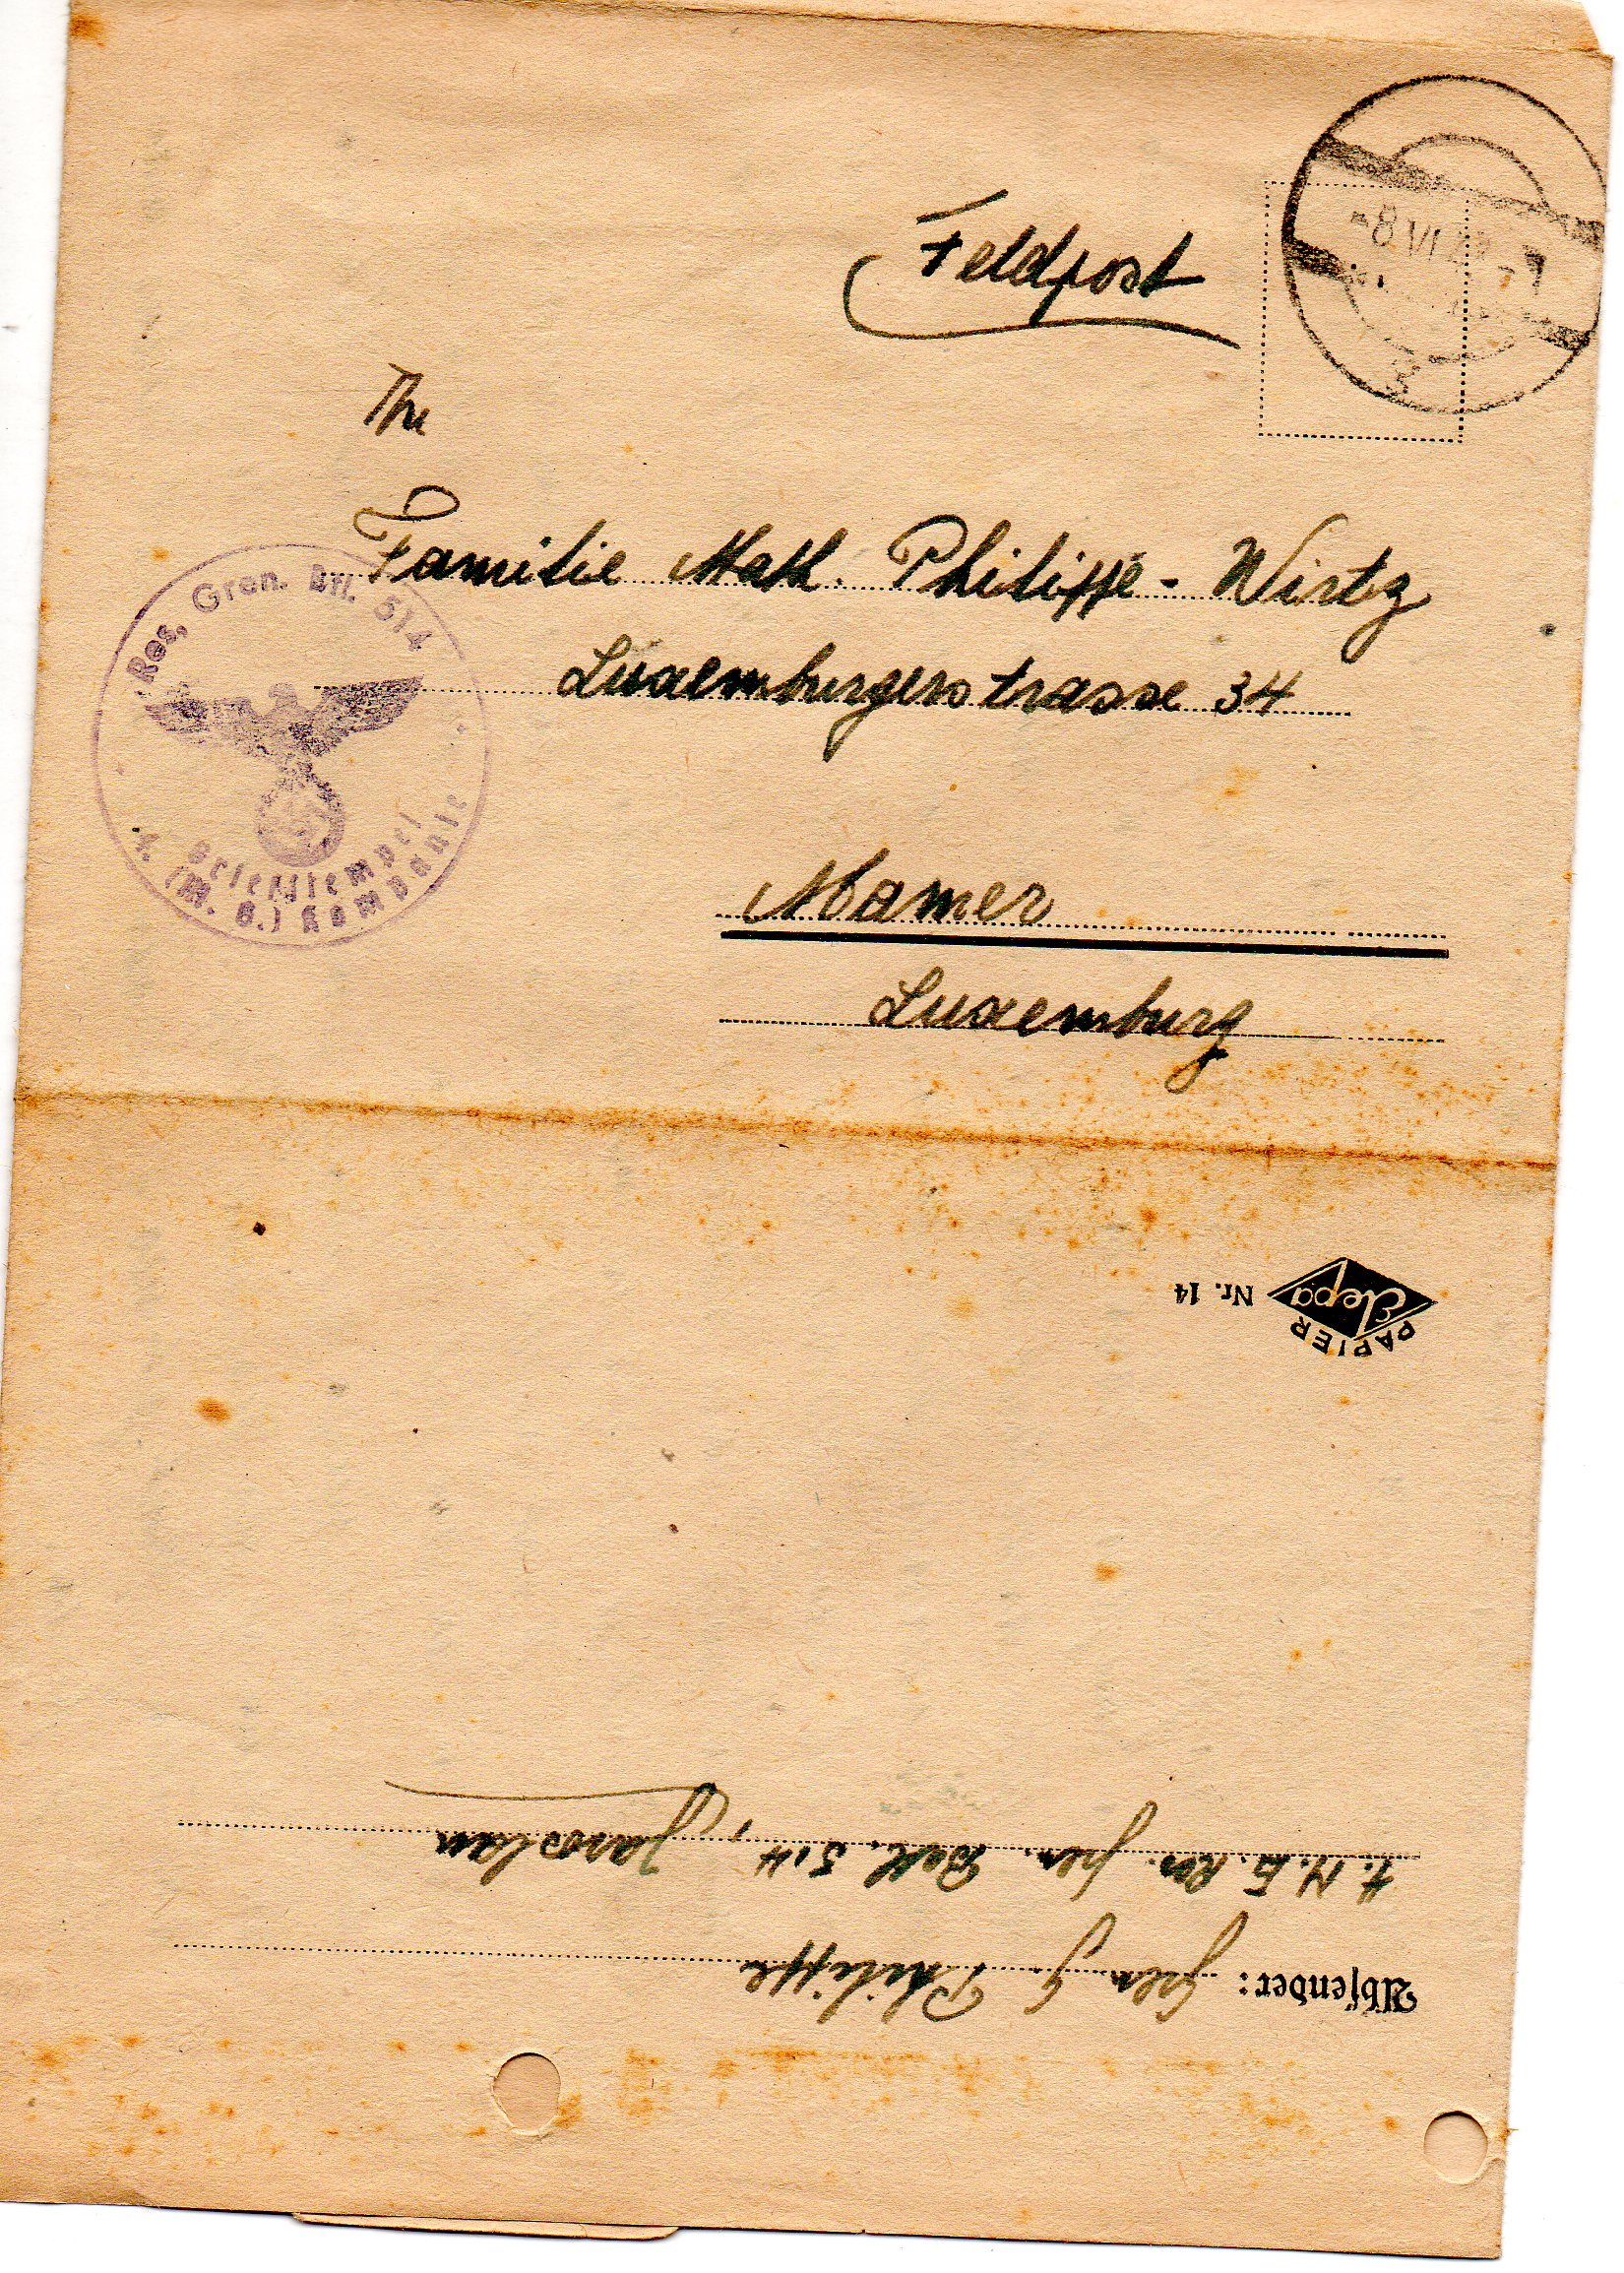 Feldpost
-8 VI
The
Familie Math. Philippe - Wirtz
Luxemburgerstrasse 34
Mamer
Luxemburg
Res. Gren. Btl. 514
Briefstempel
4. (M. G.) Kompanie
PAPIER
Elepa
Nr. 14
Absender: Gren. J. Philippe
4. M. G. Res. Gren. Batl. 514, Jaroslau